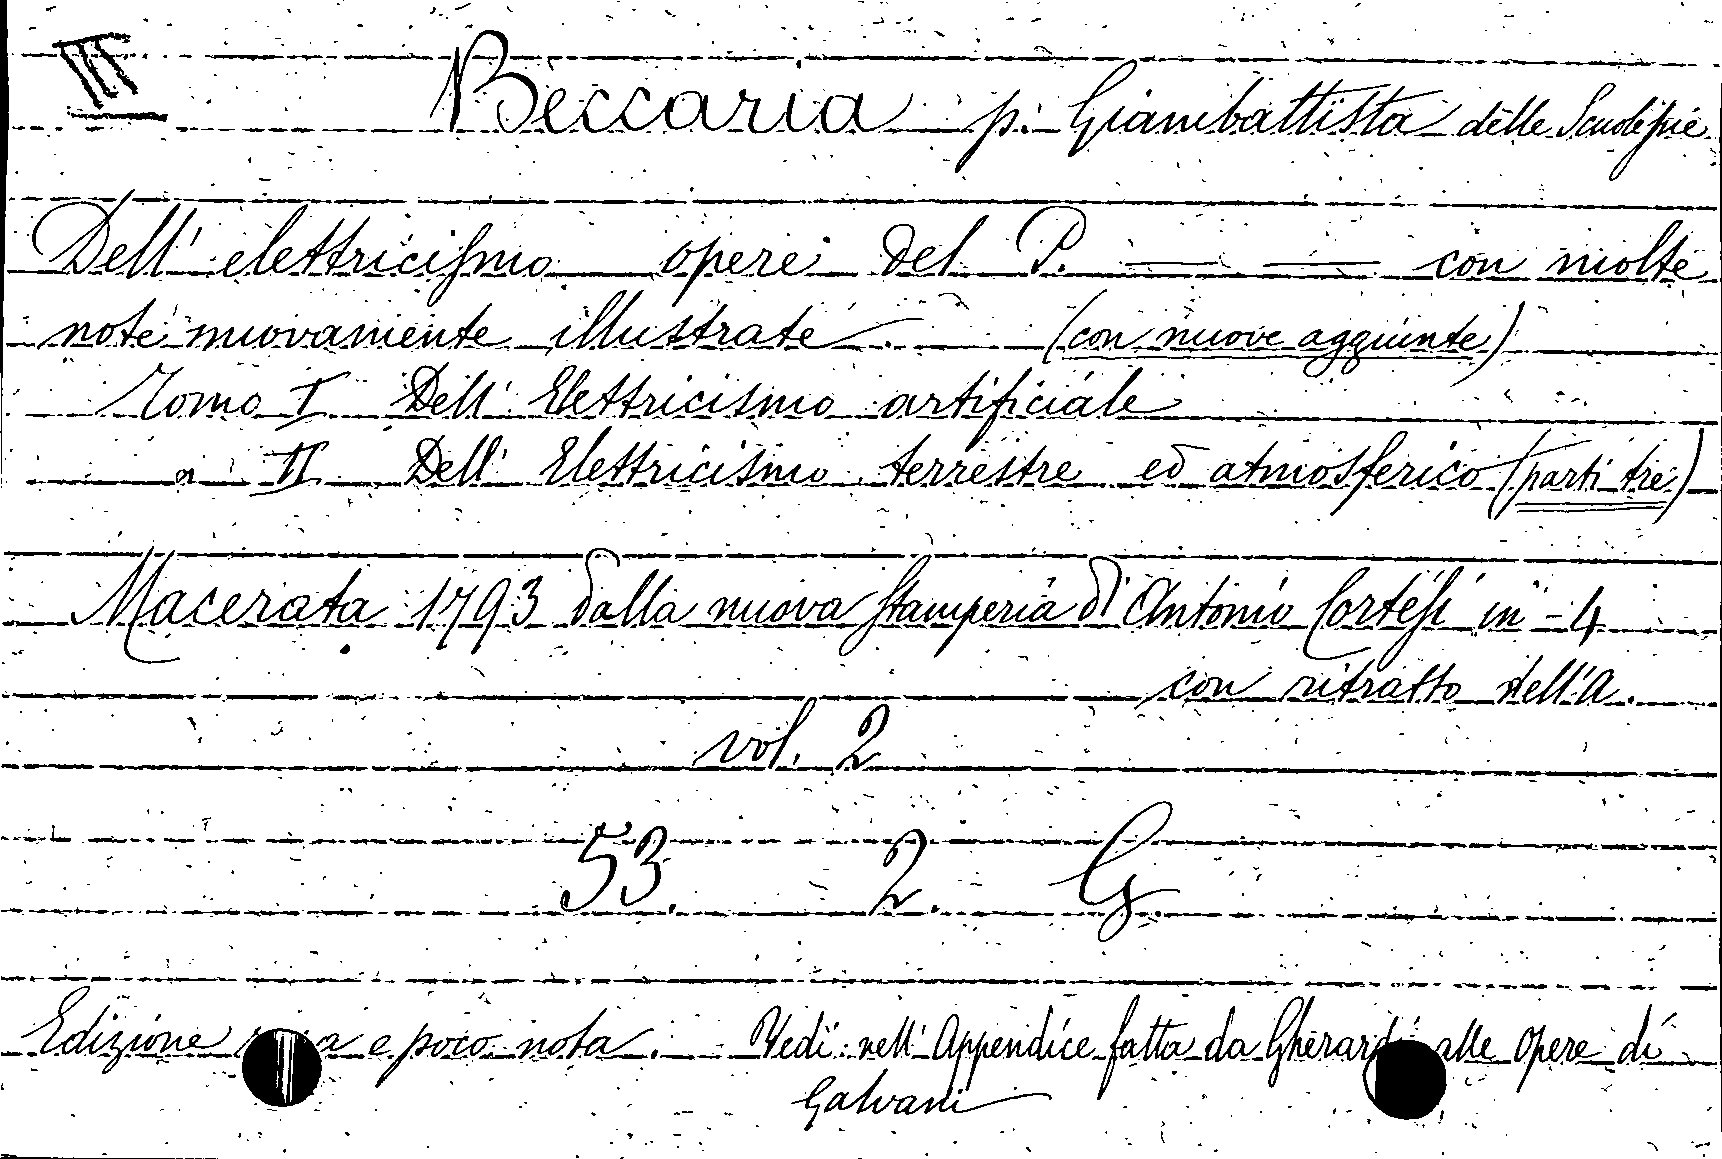 III Beccaria p. Giambattista delle Scuole pie
Dell' elettricismo opere del P. — — con molte
note nuovamente illustrate. (con nuove aggiunte)
Tomo I Dell' Elettricismo artificiale
" II Dell' Elettricismo terrestre ed atmosferico (parti tre)
Macerata 1793 dalla nuova stamperia di Antonio Cortesi in-4
con ritratto dell'A.
vol. 2
53. 2. G.
Edizione e poco nota. Vedi nell'Appendice fatta da Gherardi alle Opere di
Galvani